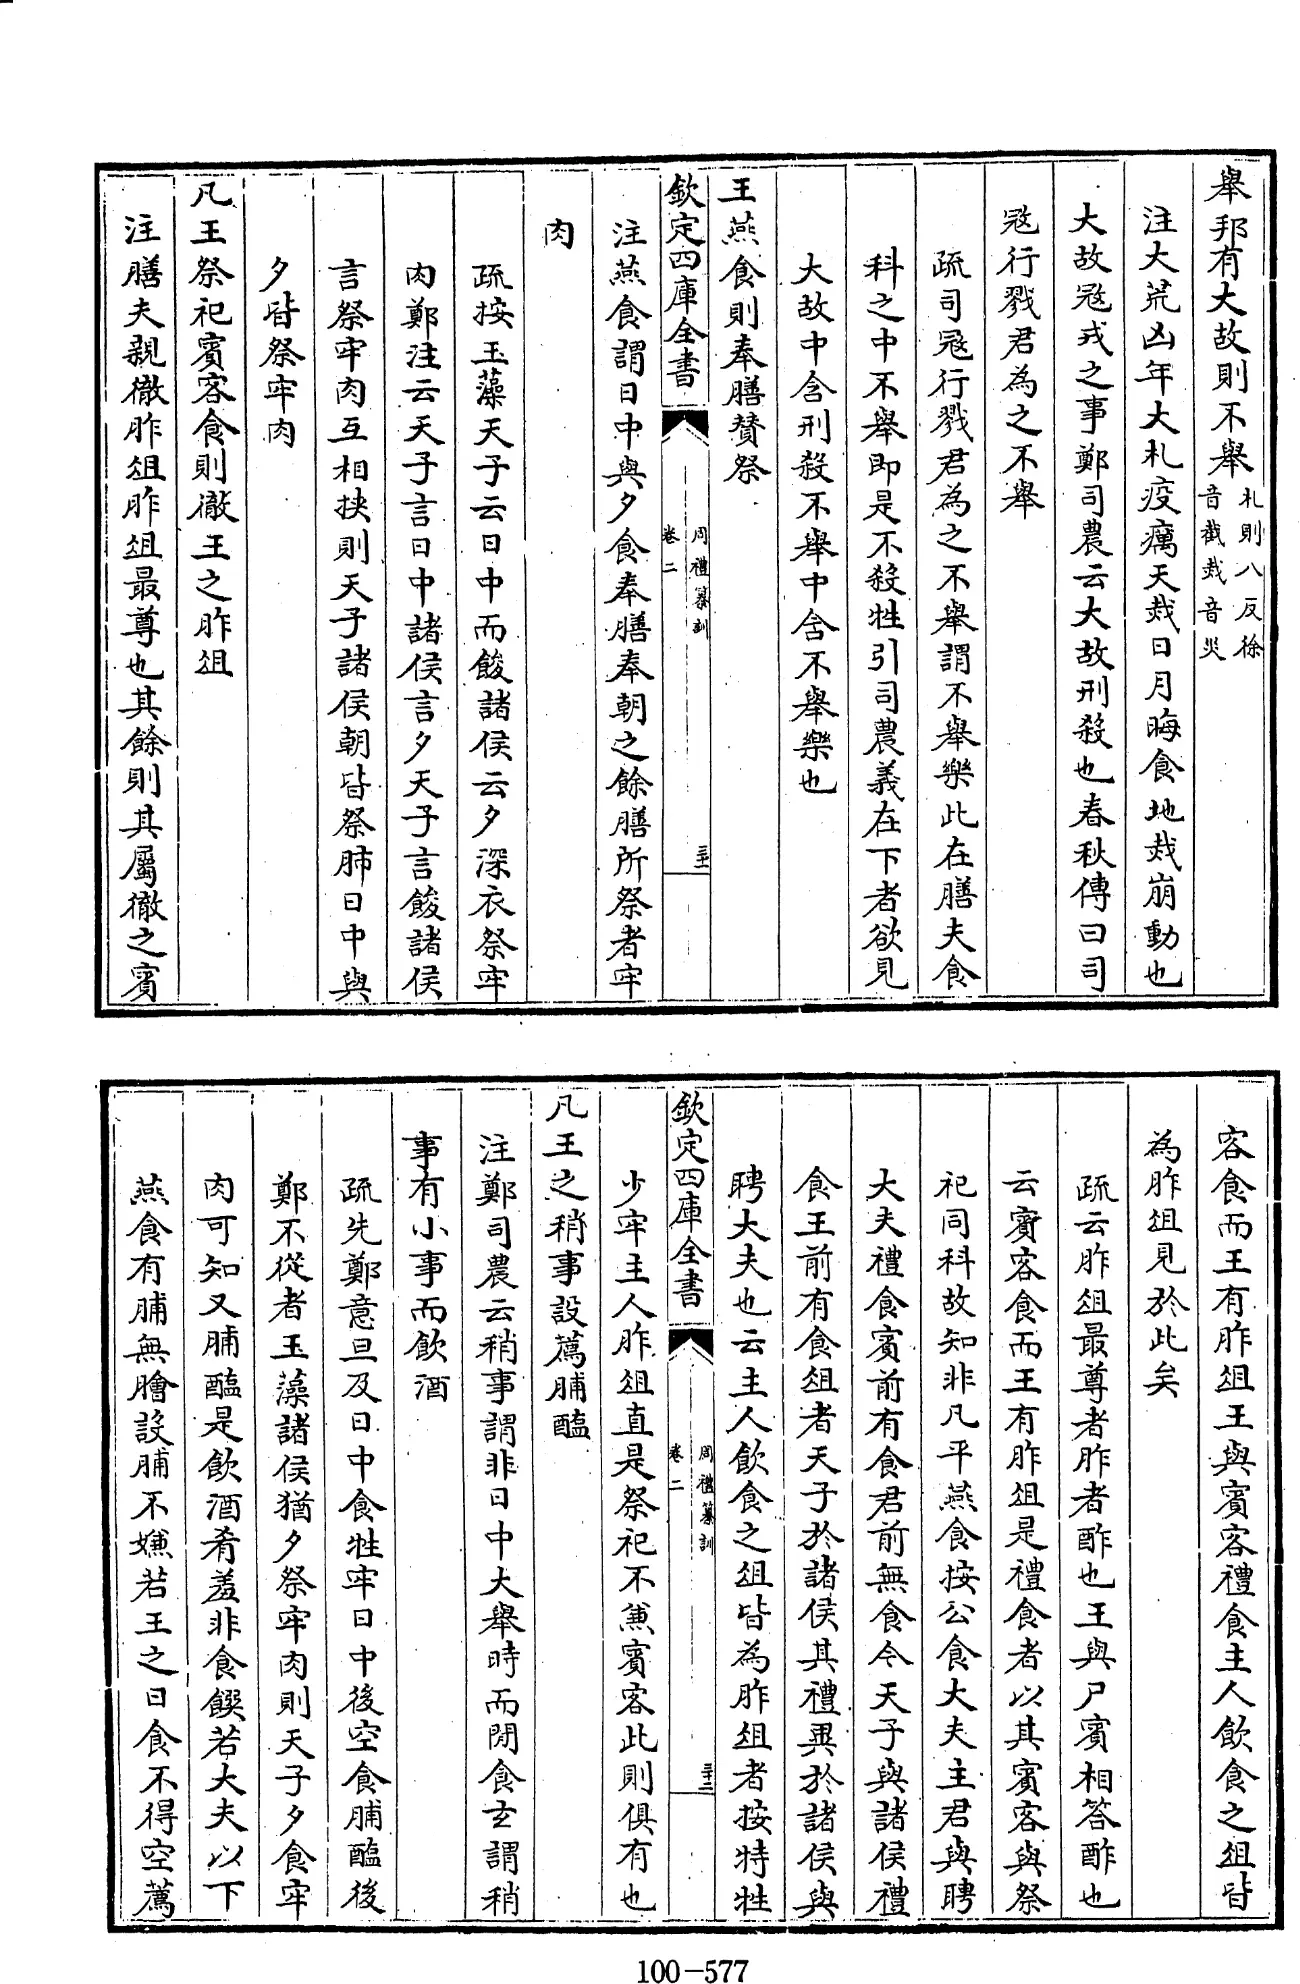 舉邦有大故則不舉札則八反徐音截烖音災
注大荒凶年大札疫癘天烖日月晦食地烖崩動也
大故㓂戎之事鄭司農云大故刑殺也春秋傳曰司
㓂行戮君為之不舉
疏司㓂行戮君為之不舉謂不舉樂此在膳夫食
科之中不舉即是不殺牲引司農義在下者欲見
大故中含刑殺不舉中含不舉樂也
王燕食則奉膳贊祭
欽定四庫全書
周禮纂訓
卷二
三十一
注燕食謂日中與夕食奉膳奉朝之餘膳所祭者牢
肉
疏按玉藻天子云日中而餕諸侯云夕深衣祭牢
肉鄭注云天子言日中諸侯言夕天子言餕諸侯
言祭牢肉互相挾則天子諸侯朝皆祭肺日中與
夕皆祭牢肉
凡王祭祀賓客食則徹王之胙俎
注膳夫親徹胙俎胙俎最尊也其餘則其屬徹之賓
客食而王有胙俎王與賓客禮食主人飲食之俎皆
為胙俎見於此矣
疏云胙俎最尊者胙者酢也王與尸賓相答酢也
云賓客食而王有胙俎是禮食者以其賓客與祭
祀同科故知非凡平燕食按公食大夫主君與聘
大夫禮食賓前有食君前無食今天子與諸侯禮
食王前有食俎者天子於諸侯其禮異於諸侯與
聘大夫也云主人飲食之俎皆為胙俎者按特牲
欽定四庫全書
周禮纂訓
卷二
三十二
少牢主人胙俎直是祭祀不兼賓客此則俱有也
凡王之稍事設薦脯醢
注鄭司農云稍事謂非日中大舉時而閒食玄謂稍
事有小事而飲酒
疏先鄭意旦及日中食牲牢日中後空食脯醢後
鄭不從者玉藻諸侯猶夕祭牢肉則天子夕食牢
肉可知又脯醢是飲酒肴羞非食饌若大夫以下
燕食有脯無膾設脯不嫌若王之日食不得空薦
100-577